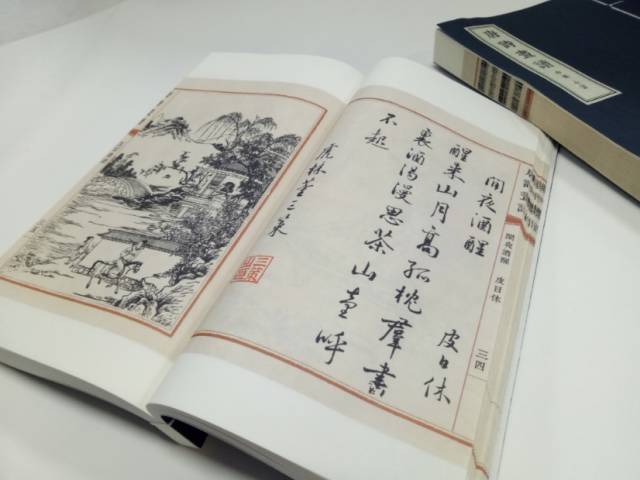 閒夜酒醒
皮日休
醒来山月高孤枕羣書
裏酒渴漫思茶山童呼
不起
虎林
閒夜酒醒 皮日休 三四